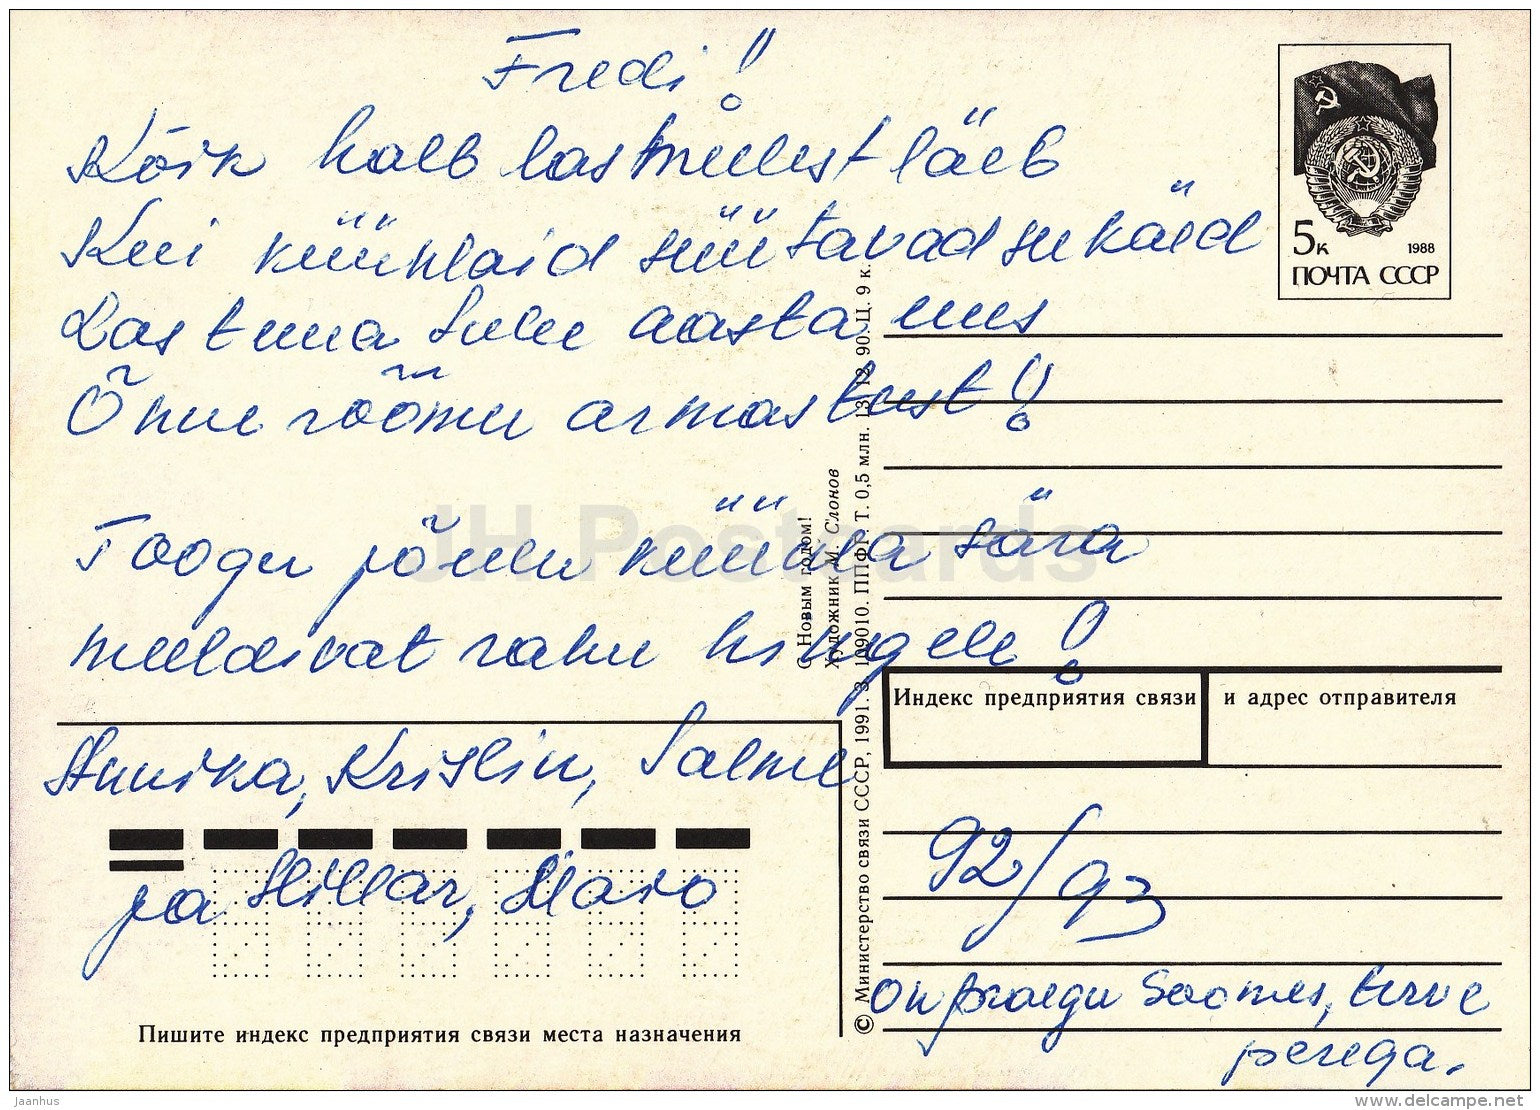 Fredi!
Kõik halb las meelest läeb
Kui küünlaid süütavad su käed
Las tuua Sulle aasta uus
Õnne rõõmu armastust!
Toogu jõulu küünla sära
meeldivat rahu hingele!
Annika, Kristlin, Salme
ja Hillar, Maro
5к 1988
ПОЧТА СССР
С Новым годом!
Художник М. Слонов
© Министерство связи СССР, 1991. З. 109010. ППФГ. Т. 0,5 млн. 13.12.90. Ц. 9 к.
Индекс предприятия связи и адрес отправителя
92/93
on praegu Soomes, terve
perega.
Пишите индекс предприятия связи места назначения
JH Postcards
jaanhus
www.delcampe.net